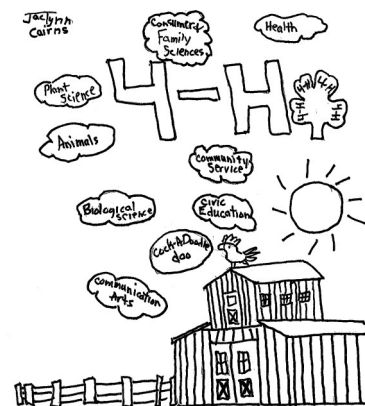 Jaclynn
Cairns
Consumer &
Family
Sciences
Health
4-H
4-H
4-H
4-H
4-H
Plant
Science
Animals
Community
Service
Biological
Science
Civic
Education
Cock-A-Doodle
doo
Communication
Arts